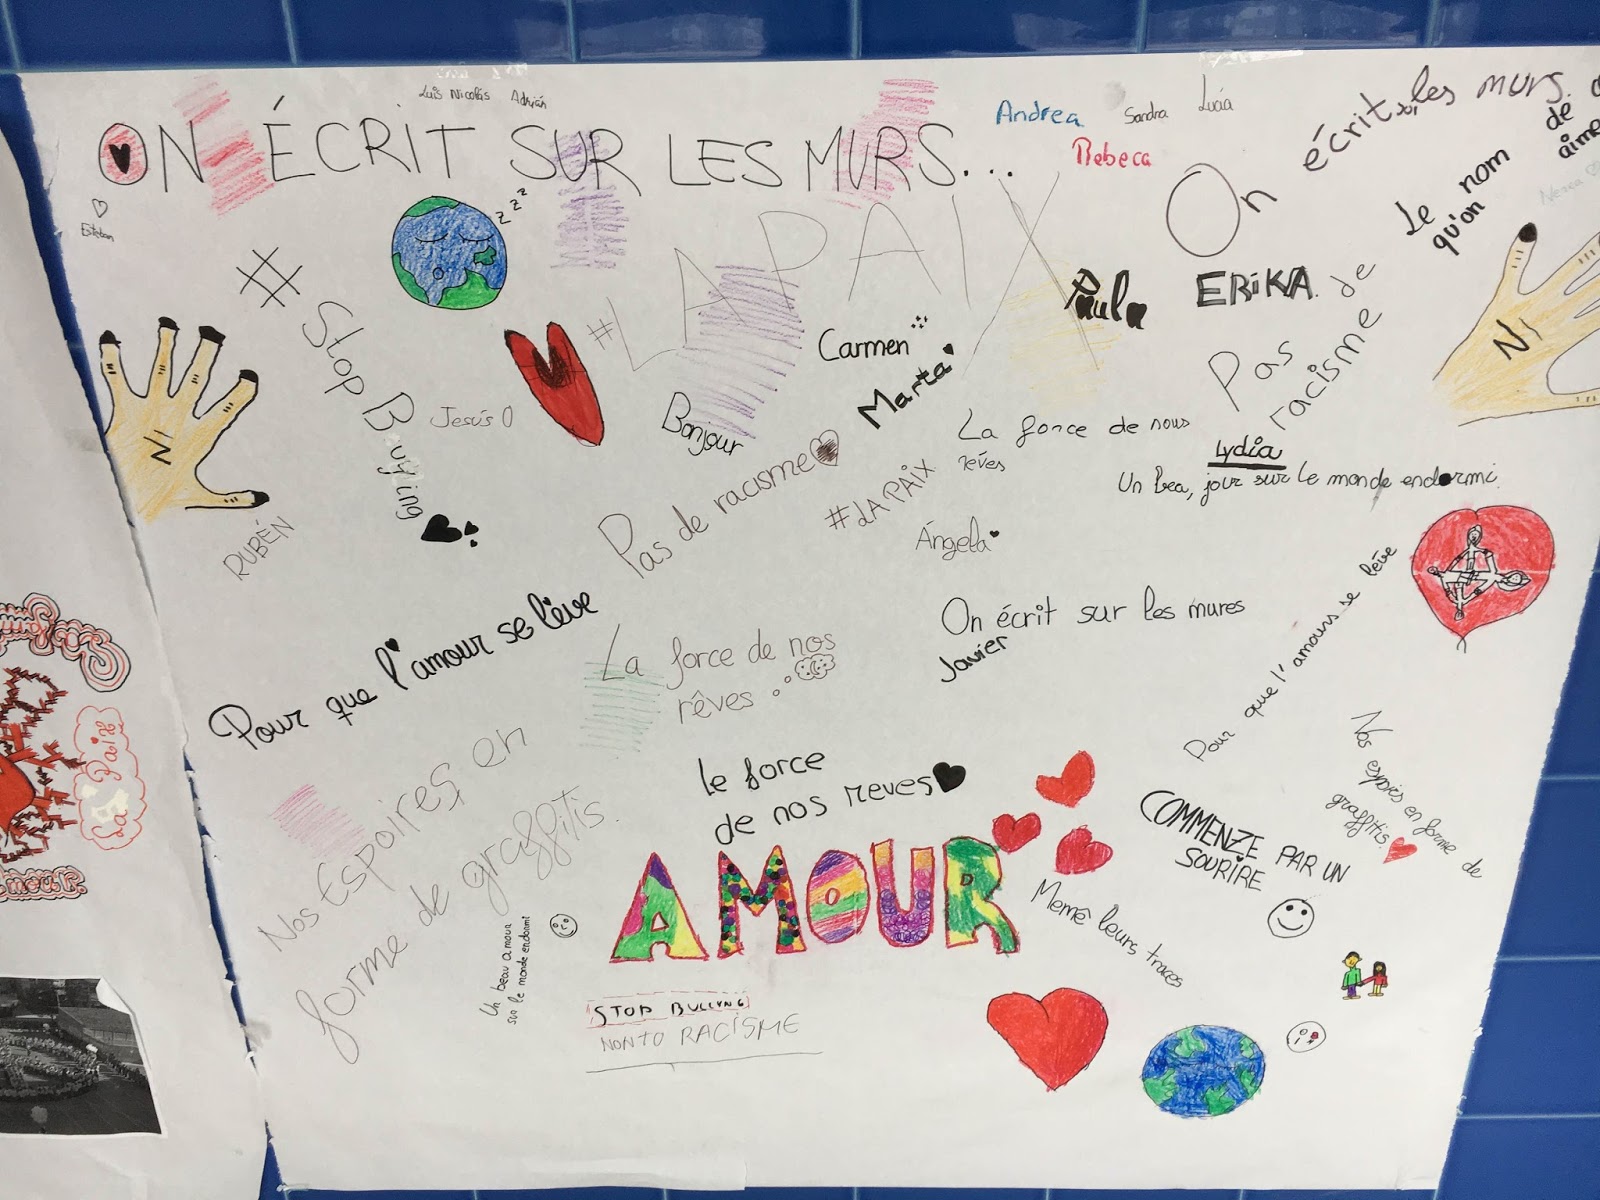 Luis Nicolás Adrián
ON ÉCRIT SUR LES MURS...
Andrea
Sandra
Lucía
Rebeca
On écrit sur les murs.
Le nom de
qu'on aime
Esteban
zzz
# Stop Bullying
#LA PAIX
Paula
ERIKA
Carmen
Marta
Pas de
racisme
NI
NI
Jesús O
Bonjour
La force de nous
rêves
Lydia
Un bea, jour sur le monde endormi.
Pas de racisme
#LA PAIX
Ángela
RUBÉN
Pour que l'amour se lève
On écrit sur les mures
Javier
Pour que l'amours se lève
La force de nos
rêves
La Paix
Nos Espoires en
forme de graffitis.
le force
de nos reves
Nos espoirs en forme de
graffitis.
COMMENZE PAR UN
SOURIRE
AMOUR
Memê leurs traces
Un beau amour
sur le monde endormi
STOP BULLYNG
NONTO RACISME